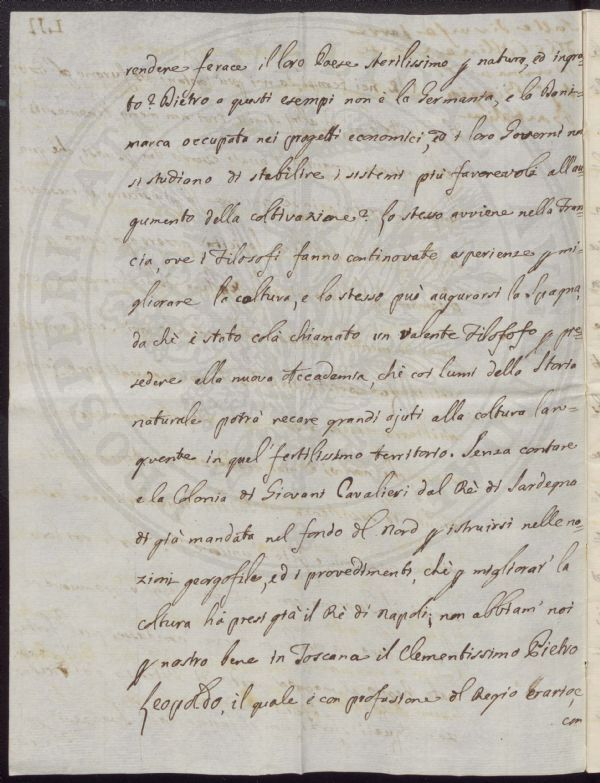 rendere ferace il loro Paese sterilissimo p natura, ed ingra=
to? Dietro a questi esempi non è la Germania, e la Dani=
marca occupata nei progetti economici, ed i loro Governi no
si studiano di stabilire i sistemi più favorevoli all'au=
gumento della coltivazione? Lo stesso avviene nella Fran=
cia, ove i Filosofi fanno continovate asperienze p mi=
gliorare la coltura, e lo stesso può augurarsi la Spagna,
da chè è stato colà chiamato un valente Filosofo p pre=
sedere alla nuova Accademia, chè coi lumi della Storia
naturale potrà recare grandi ajuti alla coltura lan=
guente in quel fertilissimo territorio. Senza contare
e la Colonia di Giovani Cavalieri dal Rè di Sardegna
di già mandata nel fondo del Nord p istruirsi nelle no=
zioni georgofile, ed i provedimenti, chè p migliorar' la
coltura hà presi già il Rè di Napoli; non abbiam' noi
p nostro bene in Toscana il Clementissimo Pietro
Leopoldo, il quale è con profusione del Regio Erario, e
con